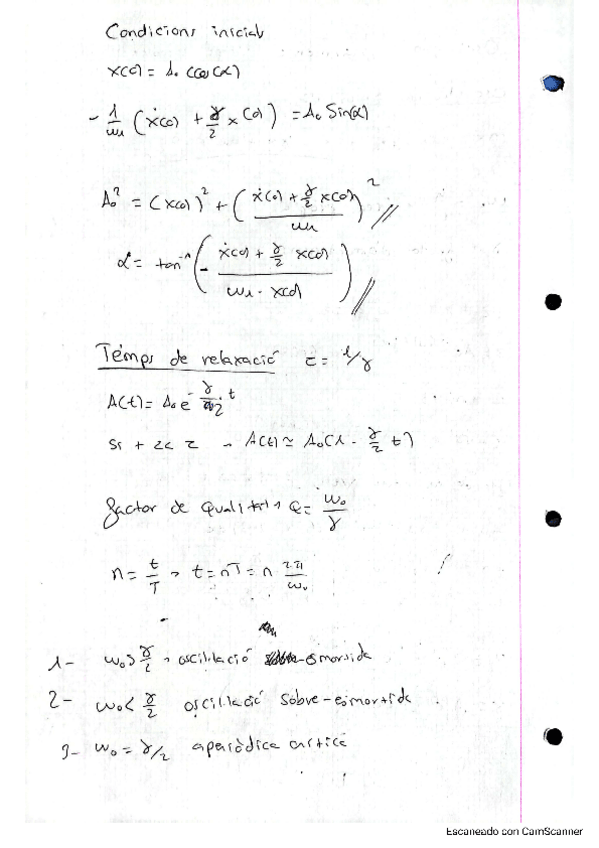 Condicions inicial
x(0) = A₀ cos(α)
- 1/ω₁ (ẋ(0) + γ/2 x(0)) = A₀ Sin(α)
A₀² = (x(0))² + ((ẋ(0) + γ/2 x(0)) / ω₁)² //
α = tan⁻¹ (- (ẋ(0) + γ/2 x(0)) / (ω₁ · x(0))) //
Témps de relaxació τ = 1/γ
A(t) = A₀ e^(-γ/2 t)
Si t << τ → A(t) ≃ A₀(1 - γ/2 t)
factor de qualitat → Q = ω₀/γ
n = t/T → t = nT = n 2π/ω₀
1- ω₀ > γ/2 → oscil·lació esmorsida
2- ω₀ < γ/2 oscil·lació sobre-esmortida
3- ω₀ = γ/2 aperiòdica crítica
Escaneado con CamScanner